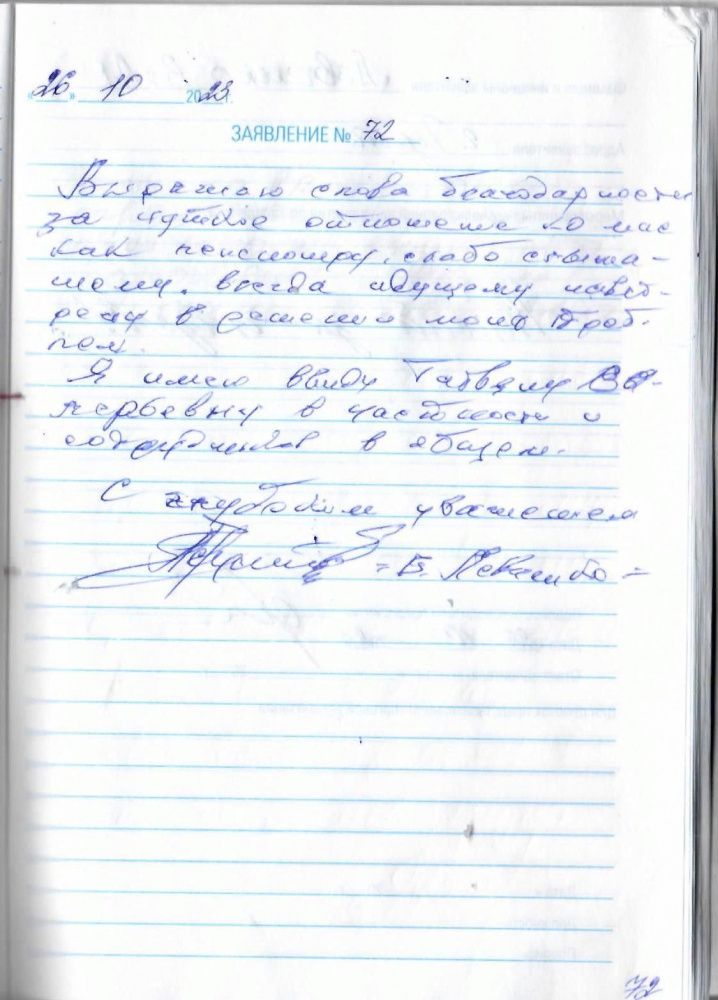 «26» 10 2023 г.
ЗАЯВЛЕНИЕ № 72
Выражаю слова благодарности
за чуткое отношение ко мне
как пенсионеру, слабо слыша-
щему. всегда идущему
в решении моих проб-
лем.
Я имею ввиду
в частности и
сотрудников в общем.
С глубоким уважением
72